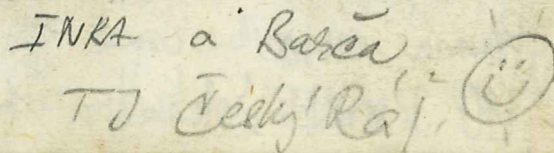 INKA a Barča
TJ Český Ráj